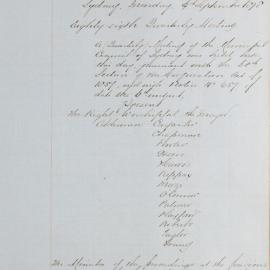 Sydney, Monday 4 September 1878
Eighty sixth Quarterly Meeting
A Quarterly Meeting of the Municipal
Council of Sydney was held here
this day, pursuant with the 60th
Section of the Corporation Act of
1857, and upon Notice No 657 of
date the instant,
Present
The Right Worshipful the Mayor
Aldermen
Chapman
Porter
Green
Rippon
Moore
O'Connor
Palmer
Playfair
Roberts
Taylor
Young
The Minutes of the proceedings at the previous